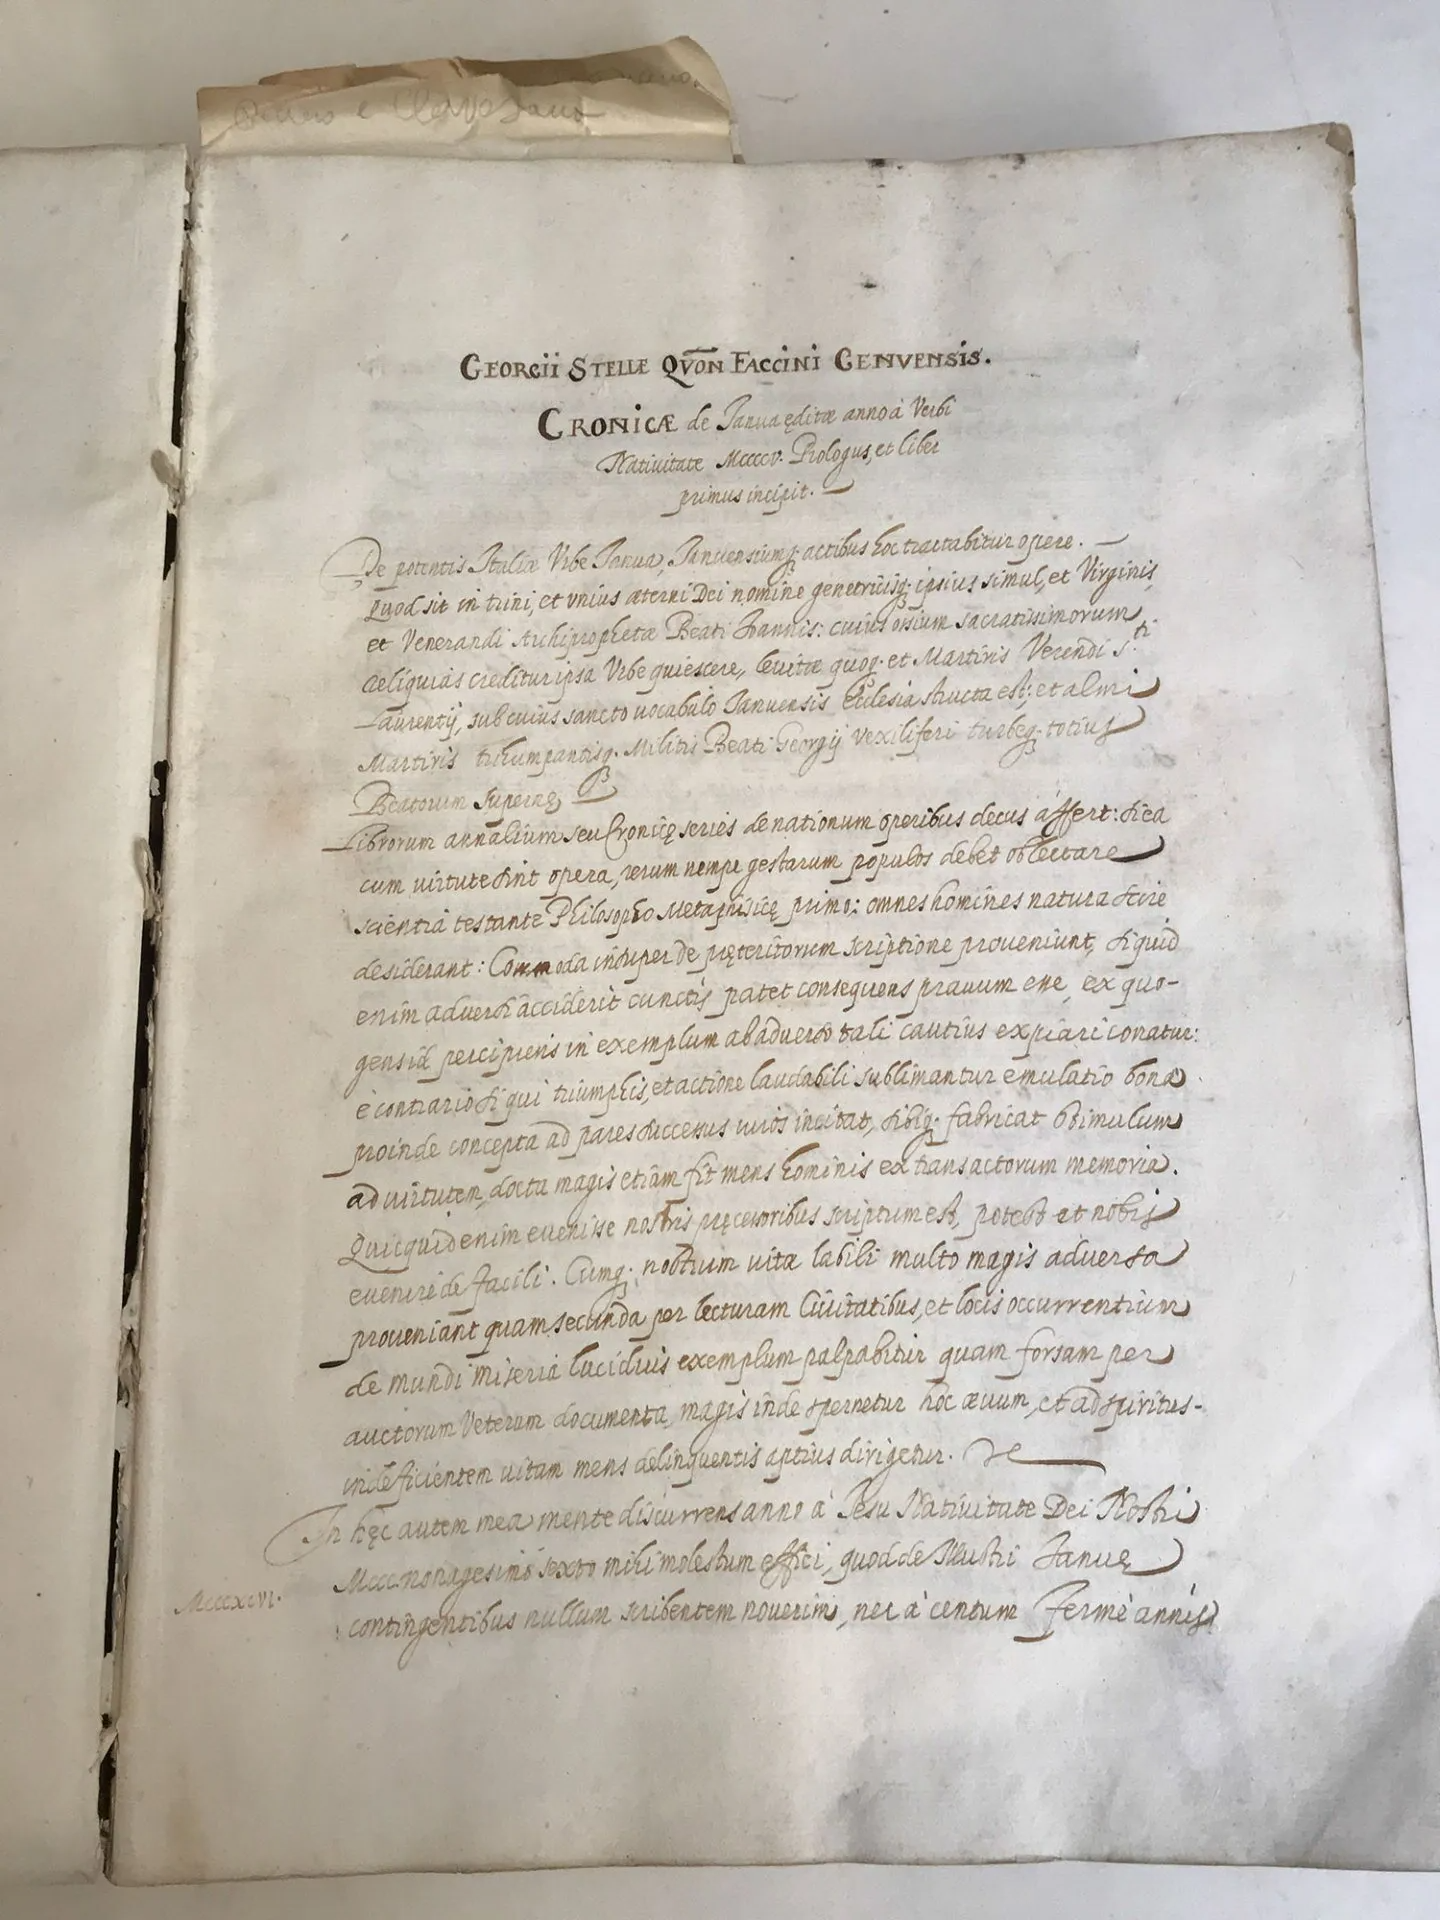 Georgii Stelle Qvōn Faccini Genvensis.
Cronicæ de Ianua ęditæ anno à Verbi
Natiuitate Mccccv. Prologus, et liber
primus incipit.
De potentis Italiæ Vrbe Ianua, Ianuensiumq. actibus hoc tractabitur opere.
Quod sit in trini, et vnius æterni Dei nomine genetricisq. ipsius simul, et Virginis,
et Venerandi Archiprophetæ Beati Ioannis: cuius ossium sacratissimorum
reliquias creditur ipsa Vrbe quiescere, leuitæ quoq. et Martiris Verendi S.ti
Laurentij, sub cuius sancto uocabulo Ianuensis Ecclesia structa est; et almi
Martiris triumpantisq. Militis Beati Georgij vexiliferi turbeq. totius
Beatorum supernę
Librorum annalium seu Cronicę series de nationum operibus decus affert: si ea
cum uirtute sint opera, rerum nempe gestarum populos debet oblectare
scientia testante Philosopho Metaphisicę primo: omnes homines natura scire
desiderant: Commoda insuper de pręteritorum scriptione proueniunt, si quid
enim aduersi acciderit cunctis patet consequens prauum esse, ex quo-
gens id percipiens in exemplum ab aduerso tali cautius expiari conatur:
è contrario si qui triumphis, et actione laudabili sublimantur emulatio bona
proinde concepta ad pares successus uiros incitat, sibiq. fabricat stimulum
ad uirtutem, docta magis etiam fit mens hominis ex transactorum memoria.
Quicquid enim euenisse nostris pręcessoribus scriptum est, potest et nobis
euenire de facili. Cumq. nostrum uita labili multo magis aduersa
proueniant quam secunda per lecturam Ciuitatibus, et locis occurrentium
de mundi miseria lucidius exemplum palpabitur quam forsam per
auctorum Veterum documenta, magis inde spernetur hoc æuum, et ad spiritus-
indeficientem uitam mens delinquentis aptius dirigetur.
In hęc autem mea mente discurrens anno à Iesu Natiuitate Dei Nostri
Mccc nonagesimo sexto mihi molestum effici, quod de Illustri Ianuę
Mccclxxxvi.
contingentibus nullum scribentem nouerim, nec à centum fermè annis